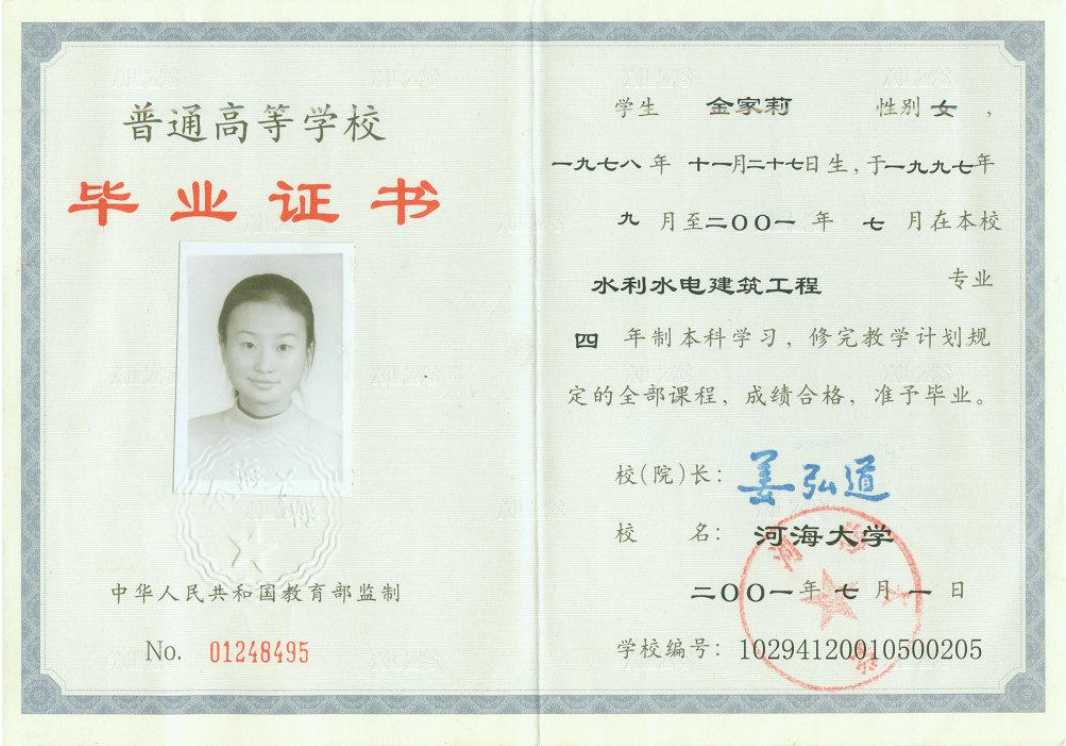 普通高等学校
毕业证书
中华人民共和国教育部监制
No. 01248495
学生 金家莉 性别 女，
一九七八年 十一月二十七日生，于一九九七年
九 月至二〇〇一 年 七 月在本校
水利水电建筑工程 专业
四 年制本科学习，修完教学计划规
定的全部课程，成绩合格，准予毕业。
校(院)长：姜弘道
校 名：河海大学
二〇〇一年 七 月 一 日
学校编号：10294120010500205